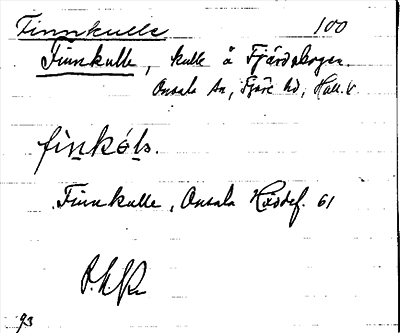 Finnkulle 100
Finnkulle, kulle å Fjärdsbergen.
Onsala sn, Fjäre hd, Hall.
finkols.
Finnkulle, Onsala Hävdef. 61
93